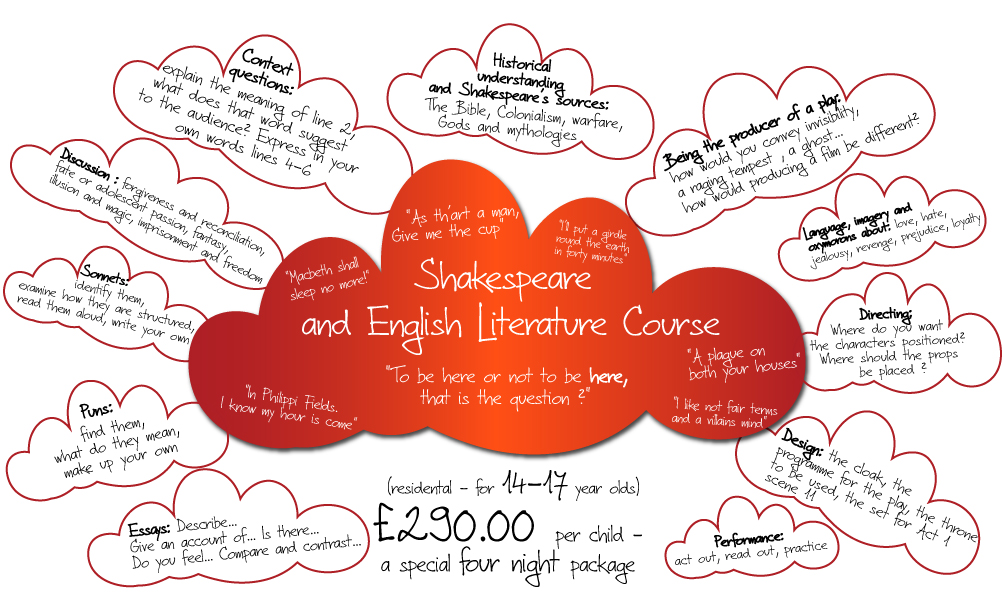 Context
questions:
explain the meaning of line 2,
what does that word suggest
to the audience? Express in your
own words lines 4-6
Historical
understanding
and Shakespeare's sources:
The Bible, Colonialism, warfare,
Gods and mythologies
Being the producer of a play:
how would you convey invisibility,
a raging tempest , a ghost...
how would producing a film be different?
Discussion : forgiveness and reconciliation,
fate or adolescent passion, fantasy,
illusion and magic, imprisonment and freedom
Language, imagery and
oxymorons about: love, hate,
jealousy, revenge, prejudice, loyalty
Sonnets:
identify them,
examine how they are structured,
read them aloud, write your own
Directing:
Where do you want
the characters positioned?
Where should the props
be placed ?
"As th'art a man,
Give me the cup"
"I'll put a girdle
round the earth
in forty minutes"
"Macbeth shall
sleep no more!"
Shakespeare
and English Literature Course
"To be here or not to be here,
that is the question ?"
"A plague on
both your houses"
"In Philippi Fields.
I know my hour is come"
"I like not fair terms
and a villains mind"
Puns:
find them,
what do they mean,
make up your own
Design: the cloak, the
programme for the play, the throne
to be used, the set for Act 1
scene 11
Essays: Describe...
Give an account of... Is there...
Do you feel... Compare and contrast...
(residental - for 14-17 year olds)
£290.00 per child -
a special four night package
Performance:
act out, read out, practice